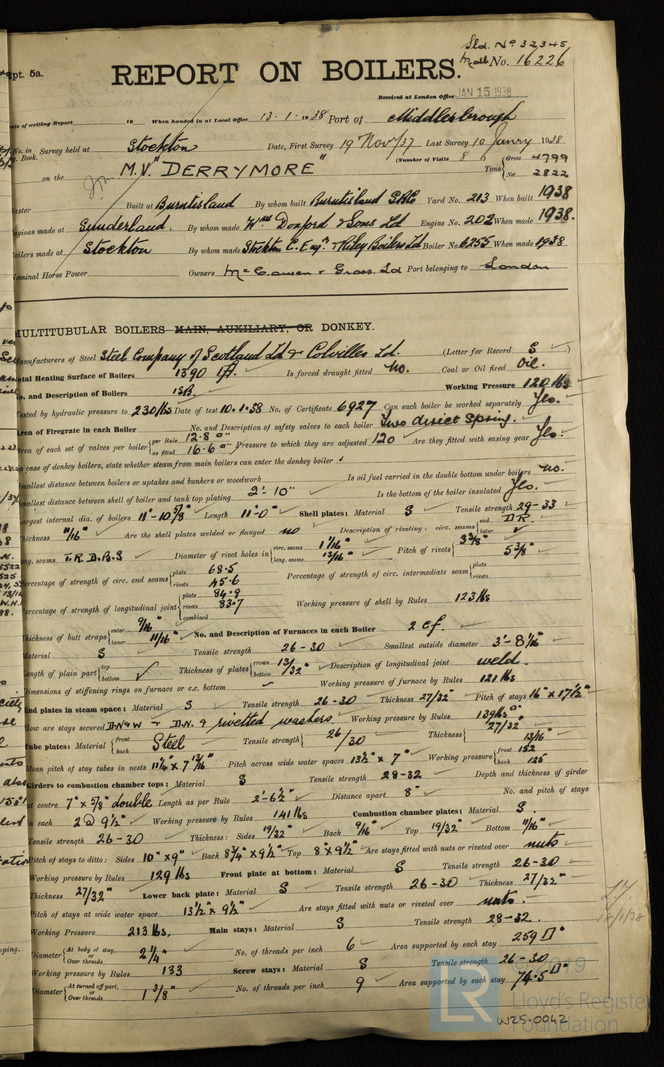 Sld. No. 32345
pt. 5a.
No. 16226
REPORT ON BOILERS.
Received at London Office JAN 15 1938
ate of writing Report 19 When handed in at Local Office 13-1-1938 Port of Middlesbrough
No. in Survey held at Stockton Date, First Survey 19 Nov/37 Last Survey 10 Janry 1938
Book.
(Number of Visits 8)
on the M.V. "DERRYMORE" Tons Gross 4799
Net 2822
aster Built at Burntisland By whom built Burntisland S.B.Co Yard No. 213 When built 1938
ngines made at Sunderland. By whom made Wm Doxford & Sons Ld Engine No. 202 When made 1938.
oilers made at Stockton By whom made Stockton C. Engrs & Riley Boilers Ld Boiler No. 6255 When made 1938
ominal Horse Power Owners McCowen & Gross Ld Port belonging to London
MULTITUBULAR BOILERS MAIN, AUXILIARY, OR DONKEY.
anufacturers of Steel Steel Company of Scotland Ld & Colvilles Ld. (Letter for Record S)
otal Heating Surface of Boilers 1390 Is forced draught fitted No. Coal or Oil fired Oil.
o. and Description of Boilers 1SB. Working Pressure 120 lbs
ested by hydraulic pressure to 230 lbs Date of test 10.1.38 No. of Certificate 6927 Can each boiler be worked separately Yes.
rea of Firegrate in each Boiler No. and Description of safety valves to each boiler Two direct Spring.
rea of each set of valves per boiler per Rule 12.8 □" as fitted 16.6 □" Pressure to which they are adjusted 120 Are they fitted with easing gear Yes.
case of donkey boilers, state whether steam from main boilers can enter the donkey boiler
mallest distance between boilers or uptakes and bunkers or woodwork Is oil fuel carried in the double bottom under boilers no.
mallest distance between shell of boiler and tank top plating 2'-10" Is the bottom of the boiler insulated Yes.
argest internal dia. of boilers 11'-10 5/8" Length 11'-0" Shell plates: Material S Tensile strength 29-33
hickness 11/16" Are the shell plates welded or flanged no Description of riveting: circ. seams end D.R. inter.
ong. seams T.R.D.B.S Diameter of rivet holes in circ. seams 1 1/16" long. seams 13/16" Pitch of rivets 3 3/8" 5 3/8"
ercentage of strength of circ. end seams plate 68.5 rivets 45.6 Percentage of strength of circ. intermediate seam plate rivets
ercentage of strength of longitudinal joint plate 84.9 rivets 83.7 combined Working pressure of shell by Rules 123 lbs
hickness of butt straps outer 9/16" inner 11/16" No. and Description of Furnaces in each Boiler 2 cf.
aterial S Tensile strength 26-30 Smallest outside diameter 3'-8 1/16"
ength of plain part top bottom Thickness of plates crown bottom 13/32" Description of longitudinal joint weld.
imensions of stiffening rings on furnace or c.c. bottom Working pressure of furnace by Rules 121 lbs
nd plates in steam space: Material S Tensile strength 26-30 Thickness 27/32" Pitch of stays 16" x 17 1/2"
ow are stays secured D.N & W D.N. & rivetted washers. Working pressure by Rules 139 lbs
ube plates: Material front back Steel Tensile strength 26/30 Thickness 27/32" 13/16"
ean pitch of stay tubes in nests 11 1/4" x 7 13/16" Pitch across wide water spaces 13 1/2" x 7" Working pressure front 152 back 125
irders to combustion chamber tops: Material S Tensile strength 28-32 Depth and thickness of girder
t centre 7" x 5/8" double Length as per Rule 2'-6 1/2" Distance apart 8" No. and pitch of stays
n each 2 @ 9 1/2" Working pressure by Rules 141 lbs Combustion chamber plates: Material S.
ensile strength 26-30 Thickness: Sides 19/32" Back 9/16" Top 19/32" Bottom 11/16"
itch of stays to ditto: Sides 10" x 9" Back 8 3/4" x 9 1/2" Top 8" x 9 1/2" Are stays fitted with nuts or riveted over nuts
orking pressure by Rules 129 lbs Front plate at bottom: Material S Tensile strength 26-30
hickness 27/32" Lower back plate: Material S Tensile strength 26-30 Thickness 27/32"
itch of stays at wide water space 13 1/2" x 9 1/2" Are stays fitted with nuts or riveted over nuts.
orking Pressure 213 lbs, Main stays: Material S Tensile strength 28-32.
iameter At body of stay, or Over threads 2 1/4" No. of threads per inch 6 Area supported by each stay 259 □"
orking pressure by Rules 133 Screw stays: Material S Tensile strength 26-30
iameter At turned off part, or Over threads 1 3/8" No. of threads per inch 9 Area supported by each stay 74.5 □"
LR
Lloyd's Register
Foundation
W25-0042